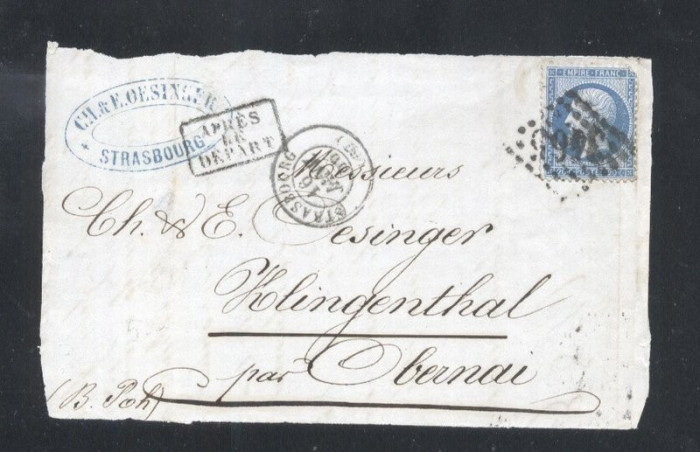 CH. & E. OESINGER
STRASBOURG
APRÈS
LE
DÉPART
STRASBOURG
EMPIRE FRANC
Messieurs
Ch. & E. Oesinger
Klingenthal
par Obernai